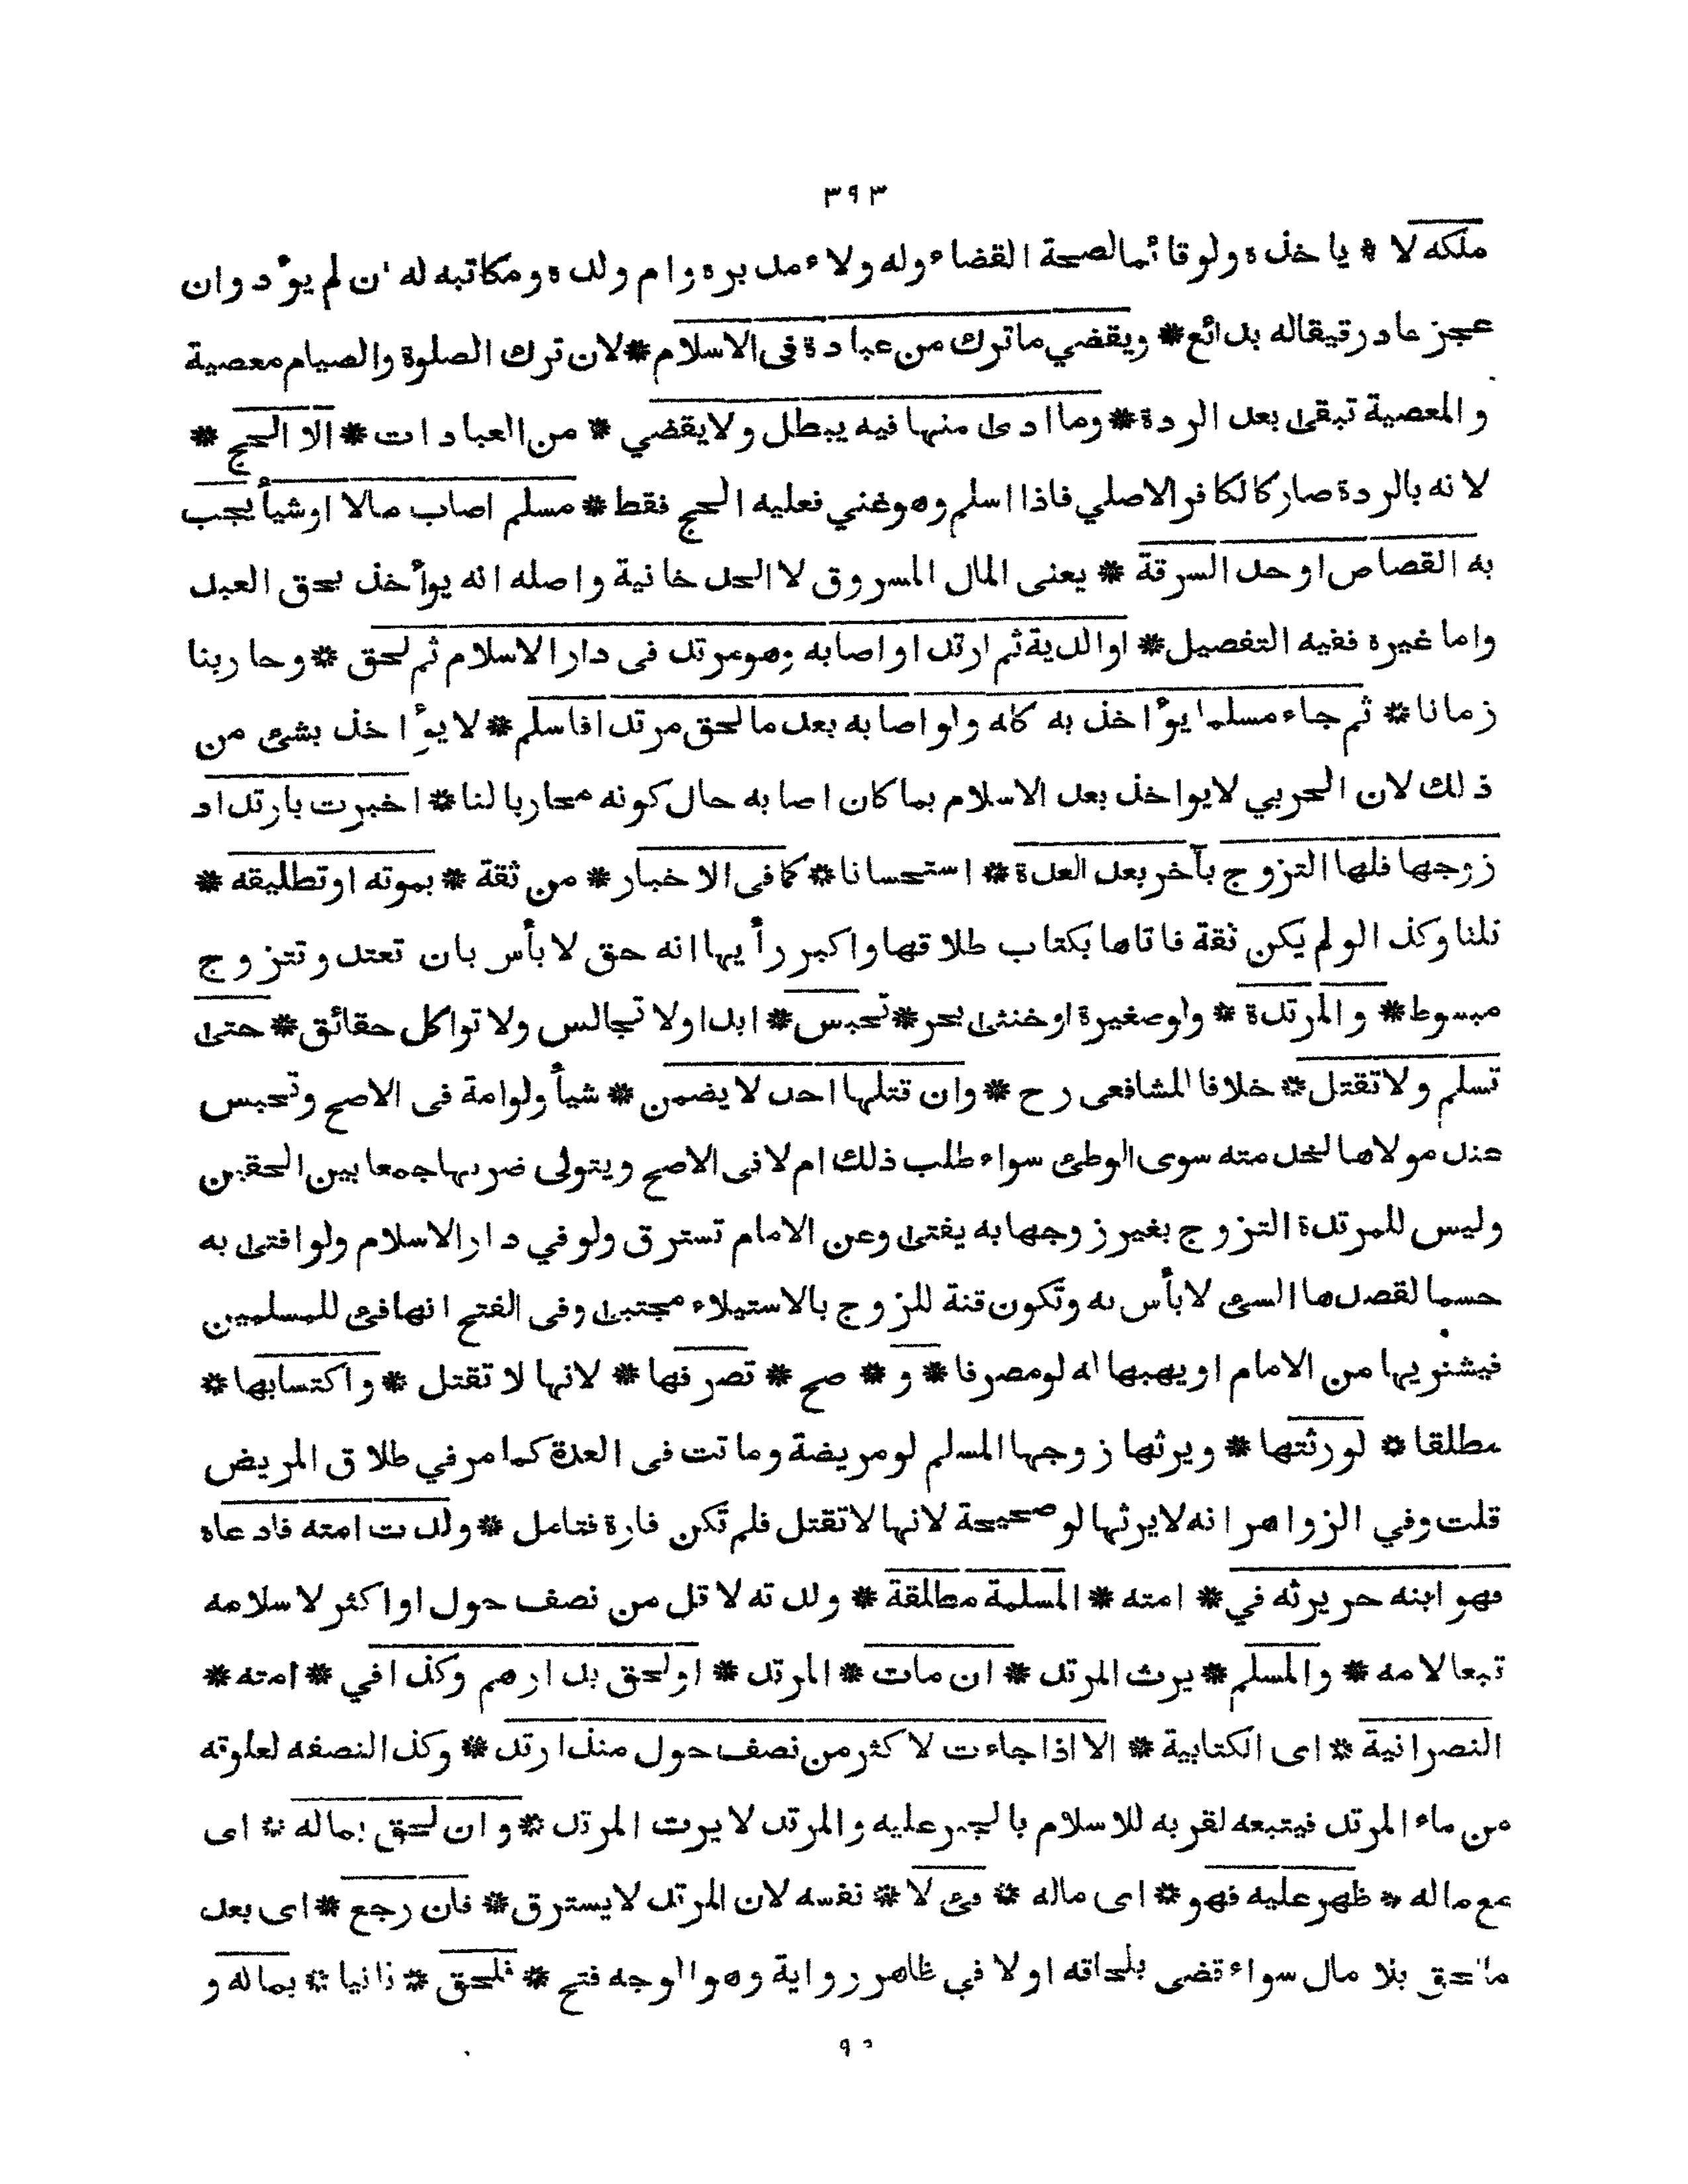 ٣٩٣
ملكه لا * ياخذه ولو قائما لصحة القضاء وله ولاء مدبره وام ولده ومكاتبه له ان لم يؤد وان
عجز عاد رقيقا له بدائع * ويقضي ما ترك من عبادة فى الاسلام * لان ترك الصلوة والصيام معصية
والمعصية تبقى بعد الردة * وما ادى منها فيه يبطل ولا يقضي * من العبادات * الا الحج *
لانه بالردة صار كالكافر الاصلي فاذا اسلم وهو غني فعليه الحج فقط * مسلم اصاب مالا او شيأ يجب
به القصاص او حد السرقة * يعنى المال المسروق لا الحد خانية واصله انه يوأخذ بحق العبد
واما غيره ففيه التفصيل * او الدية ثم ارتد او اصابه وهو مرتد فى دار الاسلام ثم لحق * وحاربنا
زمانا * ثم جاء مسلما يؤاخذ به كله ولو اصابه بعد ما لحق مرتدا فاسلم * لا يؤاخذ بشئ من
ذلك لان الحربي لا يواخذ بعد الاسلام بما كان اصابه حال كونه محاربا لنا * اخبرت بارتداد
زوجها فلها التزوج بآخر بعد العدة * استحسانا * كما فى الاخبار * من ثقة * بموته او تطليقه *
قلنا وكذا لو لم يكن ثقة فاتاها بكتاب طلاقها واكبر رأيها انه حق لا بأس بان تعتد وتتزوج
مبسوط * والمرتدة * ولو صغيرة او خنثى بحر * تحبس * ابدا ولا تجالس ولا تواكل حقائق * حتى
تسلم ولا تقتل * خلافا للشافعى رح * وان قتلها احد لا يضمن * شيأ ولو امة فى الاصح وتحبس
عند مولاها لخدمته سوى الوطئ سواء طلب ذلك ام لا فى الاصح ويتولى ضربها جمعا بين الحقين
وليس للمرتدة التزوج بغير زوجها به يفتى وعن الامام تسترق ولو في دار الاسلام ولو افتى به
حسما لقصدها السئ لا بأس به وتكون قنة للزوج بالاستيلاء مجتبى وفى الفتح انها فئ للمسلمين
فيشتريها من الامام او يهبها له لو مصرفا * و * صح * تصرفها * لانها لا تقتل * واكتسابها *
مطلقا * لورثتها * ويرثها زوجها المسلم لو مريضة وماتت فى العدة كما مر في طلاق المريض
قلت وفي الزواهر انه لا يرثها لو صحيحة لانها لا تقتل فلم تكن فارة فتامل * ولدت امته فادعاه
فهو ابنه حر يرثه في * امته * المسلمة مطلقة * ولدته لاقل من نصف حول او اكثر لاسلامه
تبعا لامه * والمسلم * يرث المرتد * ان مات * المرتد * او لحق بدارهم وكذا في * امته *
النصرانية * اى الكتابية * الا اذا جاءت لاكثر من نصف حول منذ ارتد * وكذا لنصفه لعلوقه
من ماء المرتد فيتبعه لقربه للاسلام بالجبر عليه والمرتد لا يرث المرتد * وان لحق بماله * اى
مع ماله * ظهر عليه فهو * اى ماله * فئ لا * نفسه لان المرتد لا يسترق * فان رجع * اى بعد
ما لحق بلا مال سواء قضى بلحاقه او لا في ظاهر رواية وهو الوجه فتح * فلحق * ثانيا * بماله و